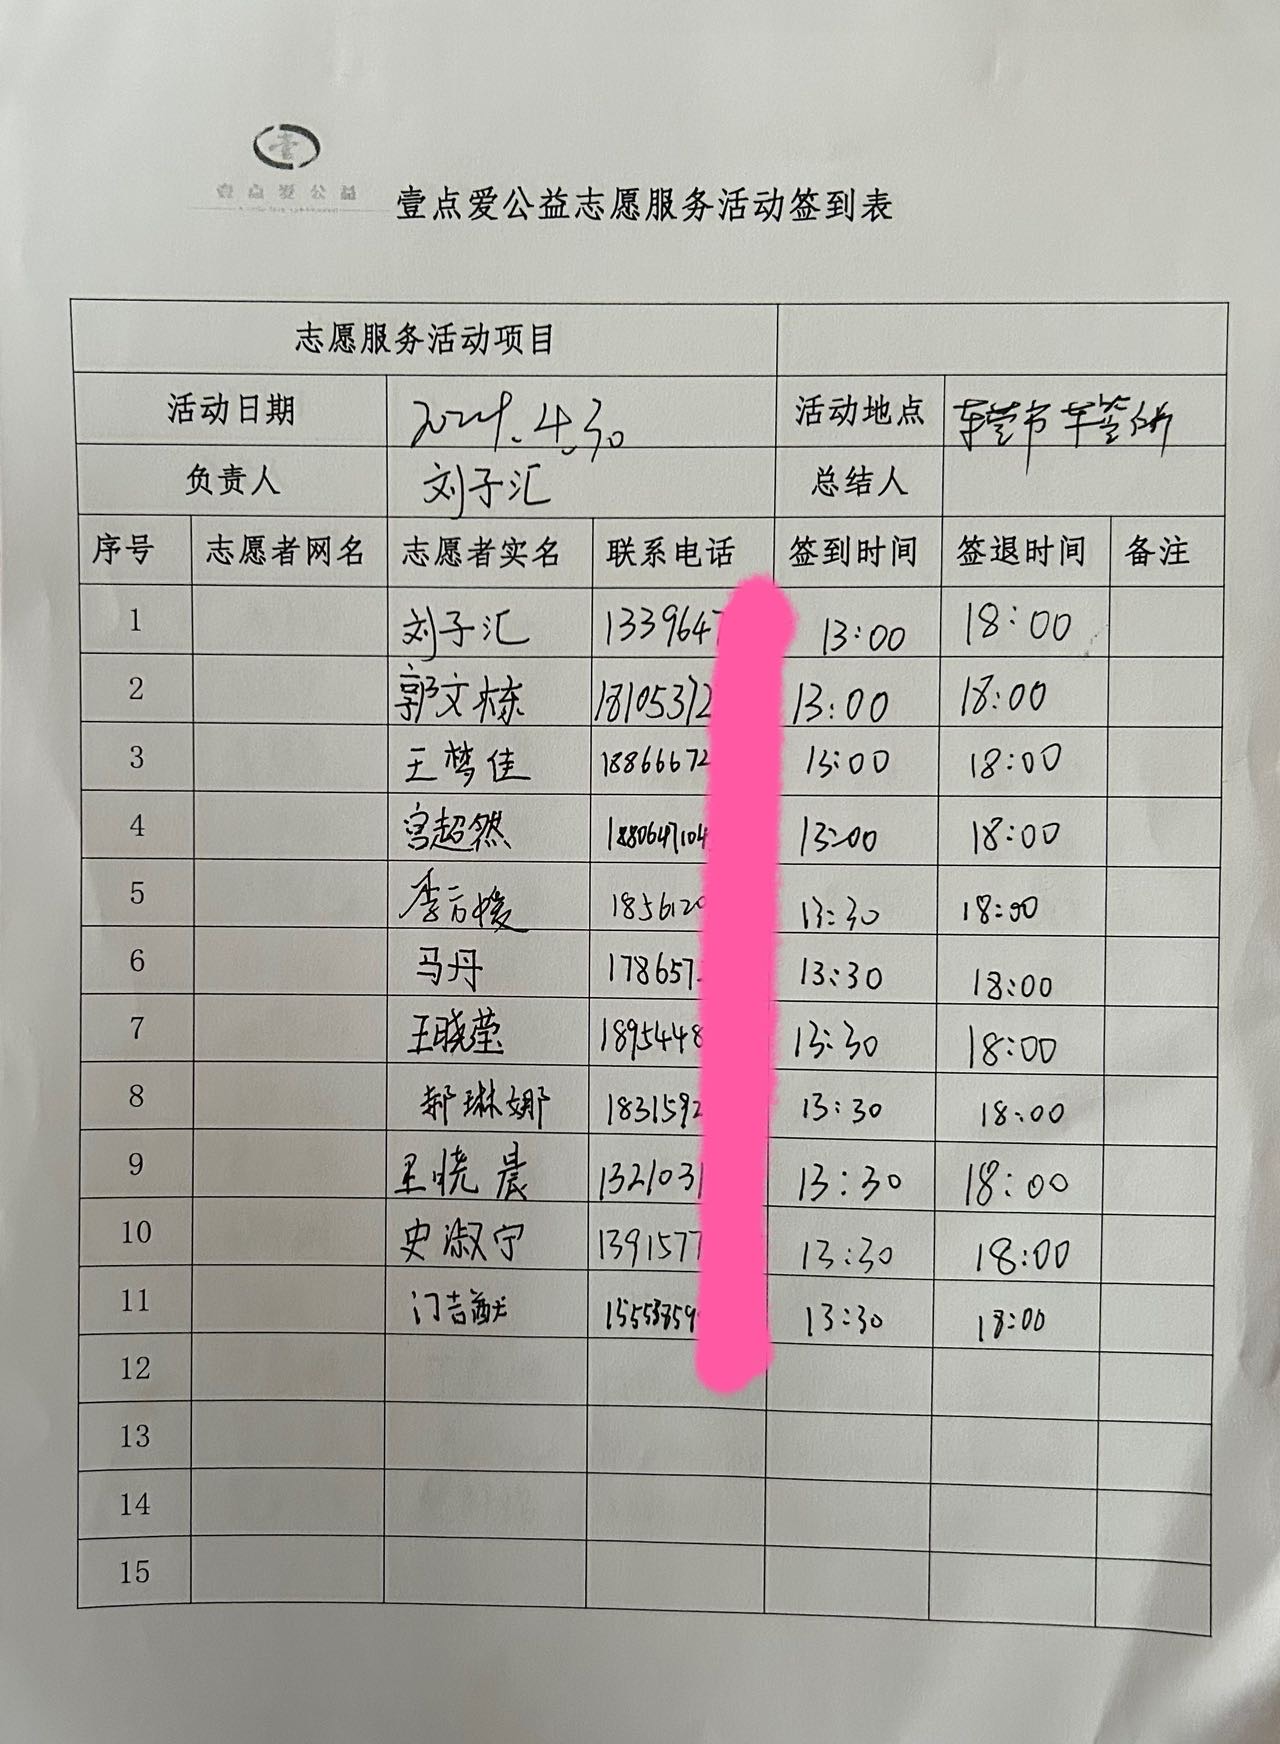 壹
壹点爱公益
壹点爱公益志愿服务活动签到表
志愿服务活动项目
活动日期 2024.4.30 活动地点
负责人 刘子汇 总结人
序号 志愿者网名 志愿者实名 联系电话 签到时间 签退时间 备注
1 刘子汇 1339647 13:00 18:00
2 郭文栋 18105372 13:00 18:00
3 王梦佳 18866672 13:00 18:00
4 宫超然 1880647104 13:00 18:00
5 李 1856120 13:30 18:00
6 马丹 178657 13:30 18:00
7 王晓莹 1895448 13:30 18:00
8 郝琳娜 1831592 13:30 18:00
9 王晓晨 1321031 13:30 18:00
10 史淑宁 1391577 13:30 18:00
11 门吉猷 15553859 13:30 18:00
12
13
14
15